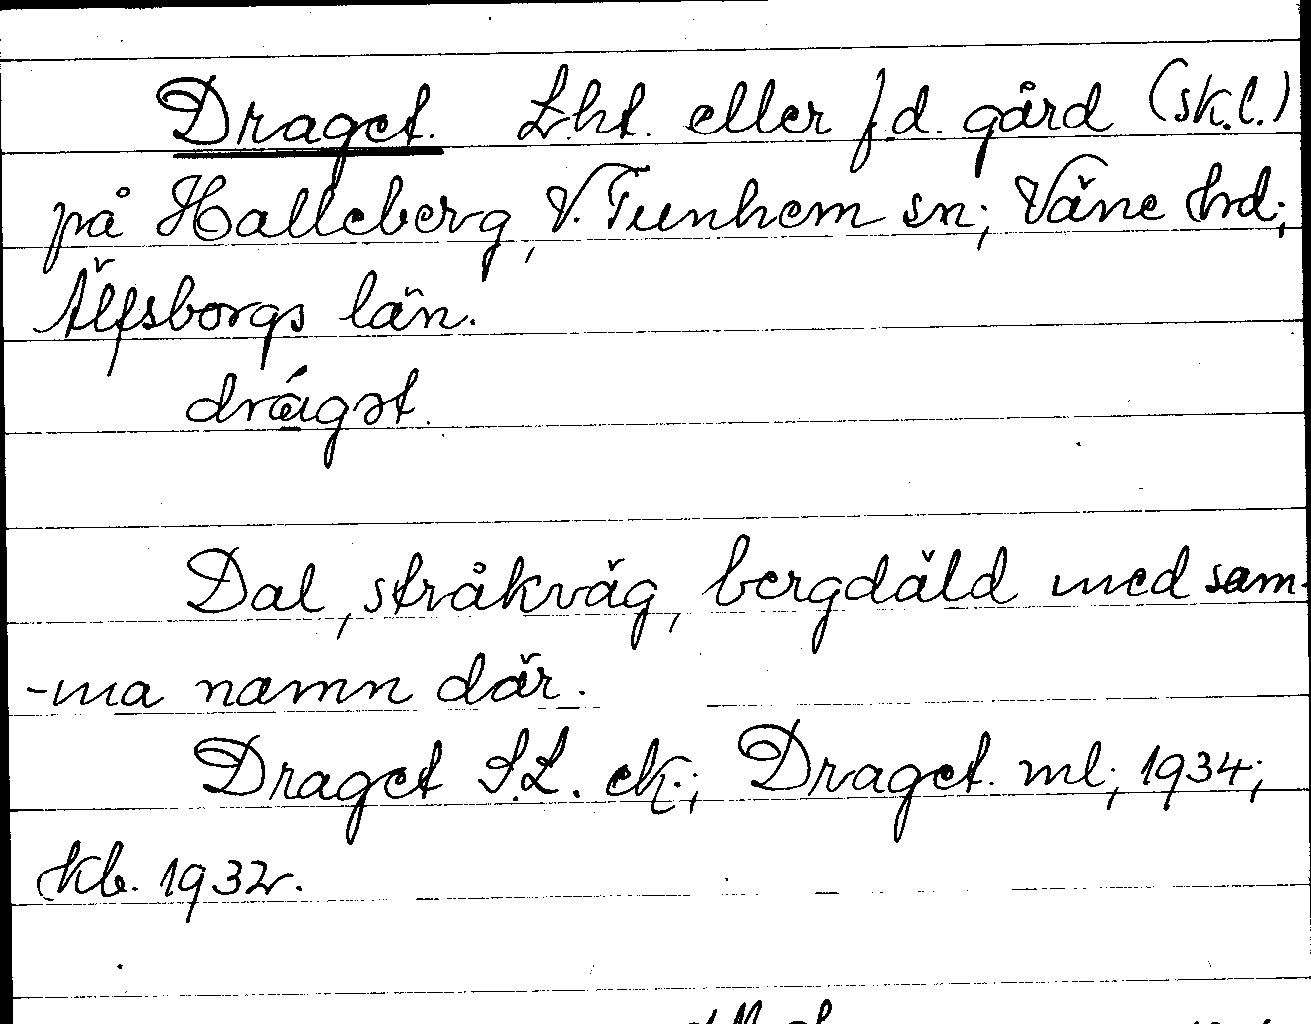 Draget. Lht. eller f.d. gård (sk.l.)
på Halleberg, V. Tunhem sn; Väne hd;
Älfsborgs län.
drágət.
Dal, stråkväg, bergdäld med sam-
-ma namn där.
Draget S.L. ek.; Draget. ml; 1934;
kb. 1932.